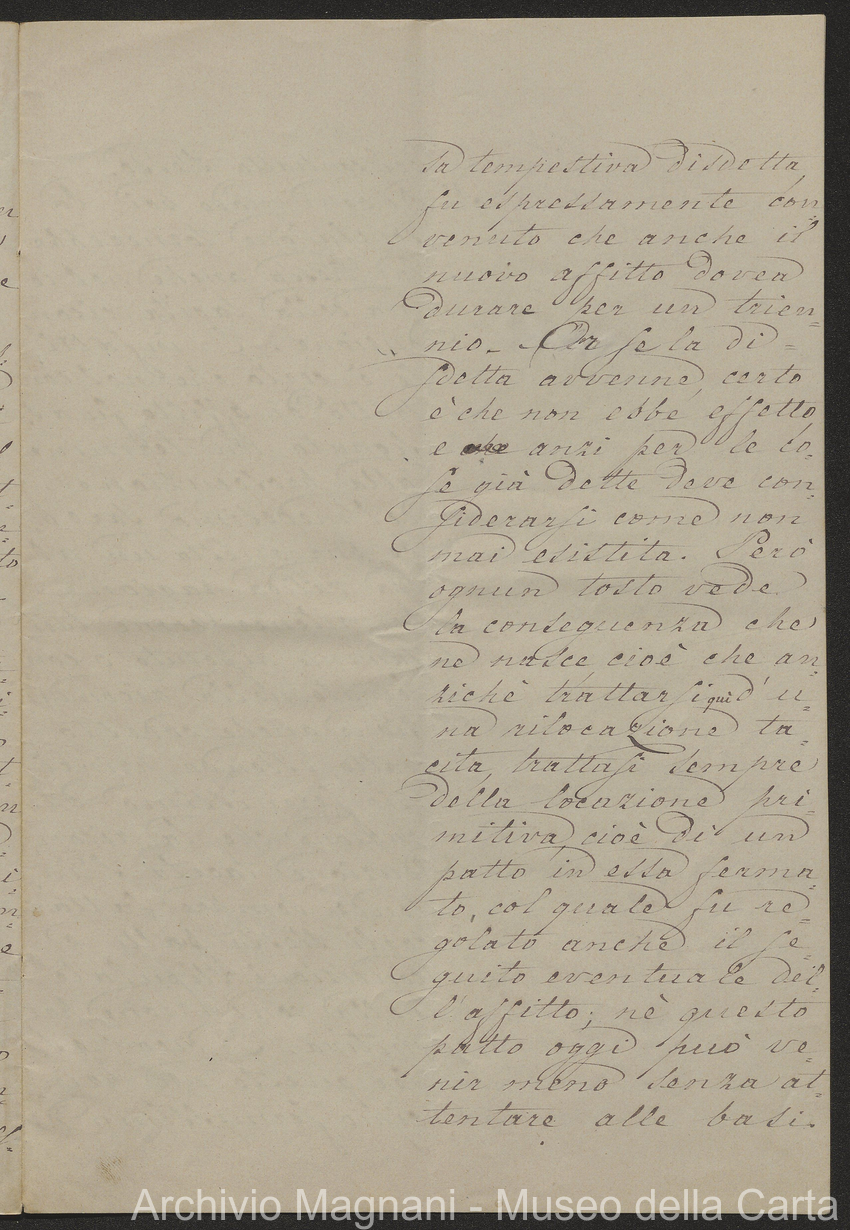 sa tempestiva disdetta
fu espressamente con=
venuto che anche il
nuovo affitto dovea
durare per un trien=
nio. - Or se la di=
sdetta avvenne, certo
è che non ebbe effetto
e che anzi per le co=
se già dette deve con=
siderarsi come non
mai esistita. Però
ognun tosto vede
la conseguenza che
ne nasce cioè che an=
zichè trattarsi quì d'u=
na rilocazione ta=
cita, trattasi sempre
della locazione pri=
mitiva, cioè di un
patto in essa ferma=
to, col quale fu re=
golato anche il se=
guito eventuale del=
l'affitto; nè questo
patto oggi può ve=
nir meno senza at=
tentare alle basi.
Archivio Magnani - Museo della Carta